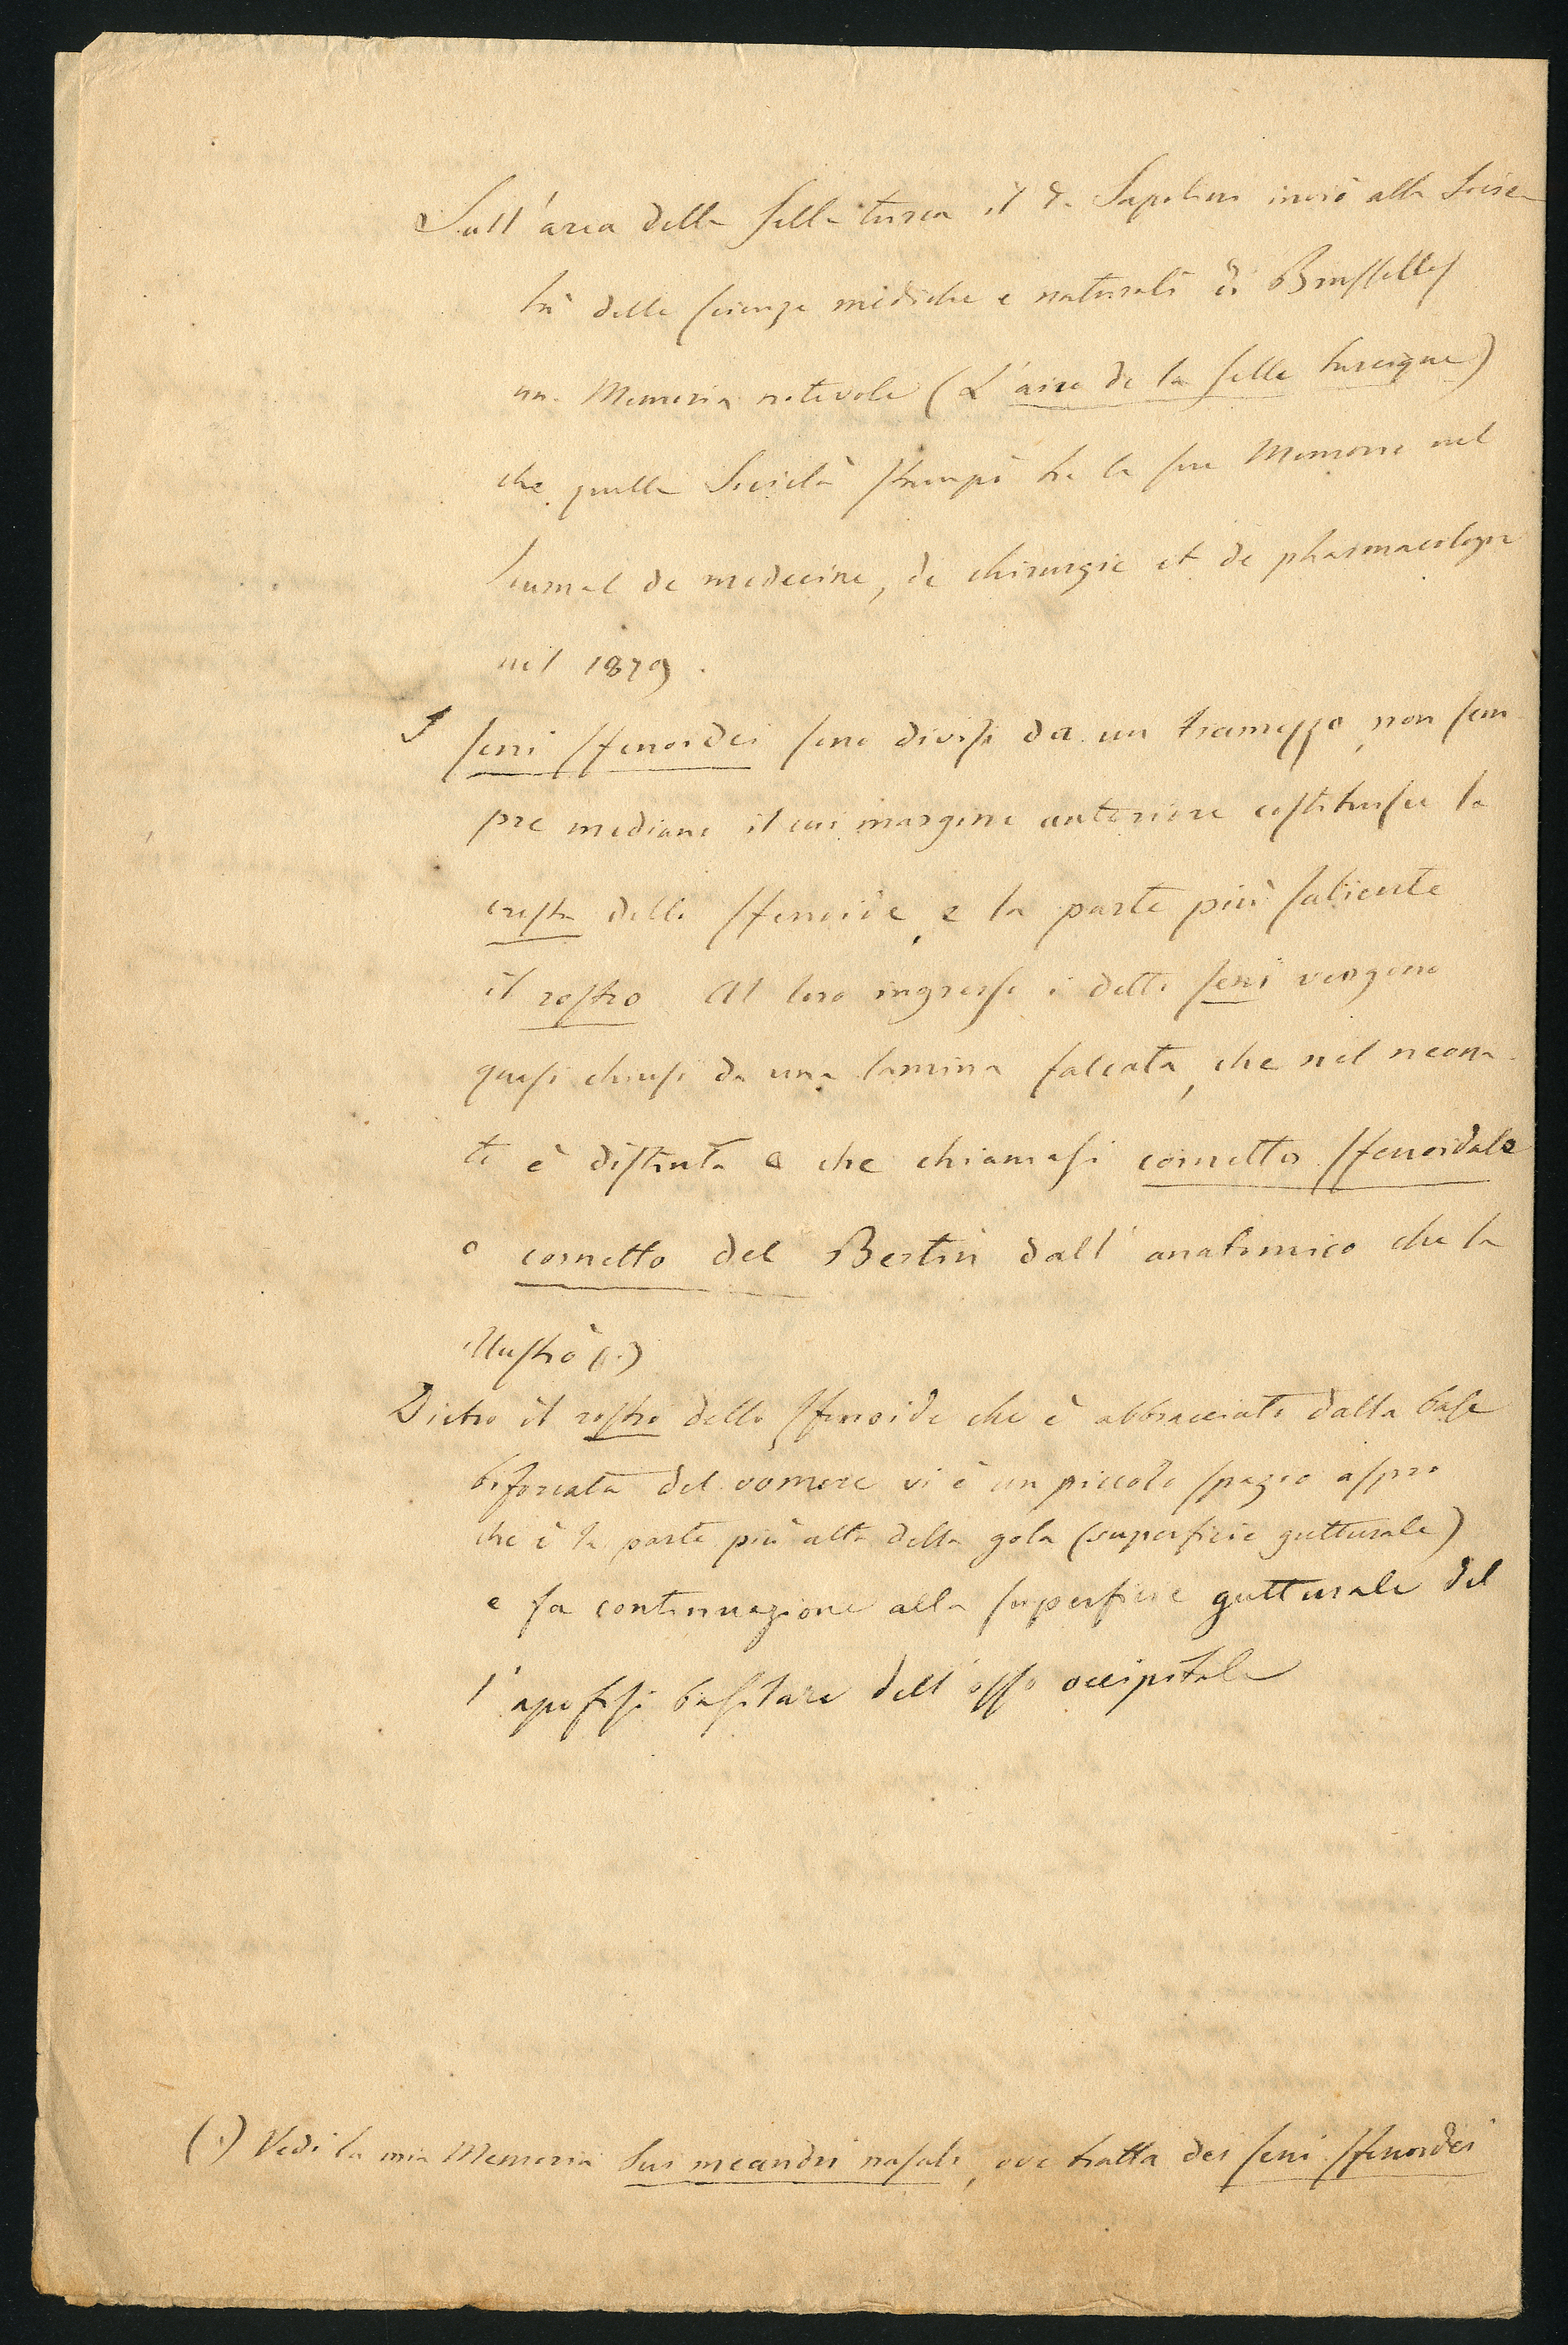 Sull'area della sella turca il Dr Sapolini inviò alla Socie-
tà delle scienze mediche e naturali di Brusselles
una Memoria notevole (L'aire de la selle turcique)
che quella Società stampò tra le sue Memorie nel
Journal de medecine, de chirurgie et de pharmacologie
nel 1879.
I seni sfenoidei sono divisi da un tramezzo, non sem-
pre mediano il cui margine anteriore costituisce la
cresta dello sfenoide, e la parte più saliente
il rostro. Al loro ingresso i detti seni vengono
quasi chiusi da una lamina falcata, che nel neona-
to è distinta e che chiamasi cornetto sfenoidale
o cornetto del Bertin dall'anatomico che la
illustrò (1.)
Dietro il rostro dello sfenoide che è abbracciato dalla base
biforcata del vomere vi è un piccolo spazio aspro
che è la parte più alta della gola (superficie gutturale)
e fa continuazione alla superficie gutturale del
l'apofisi basilare dell'osso occipitale
(1) Vedi la mia Memoria Sui meandri nasali, ove tratta dei seni sfenoidei